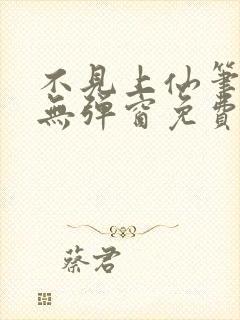 不見上仙筆
無彈窗免費
蔡君